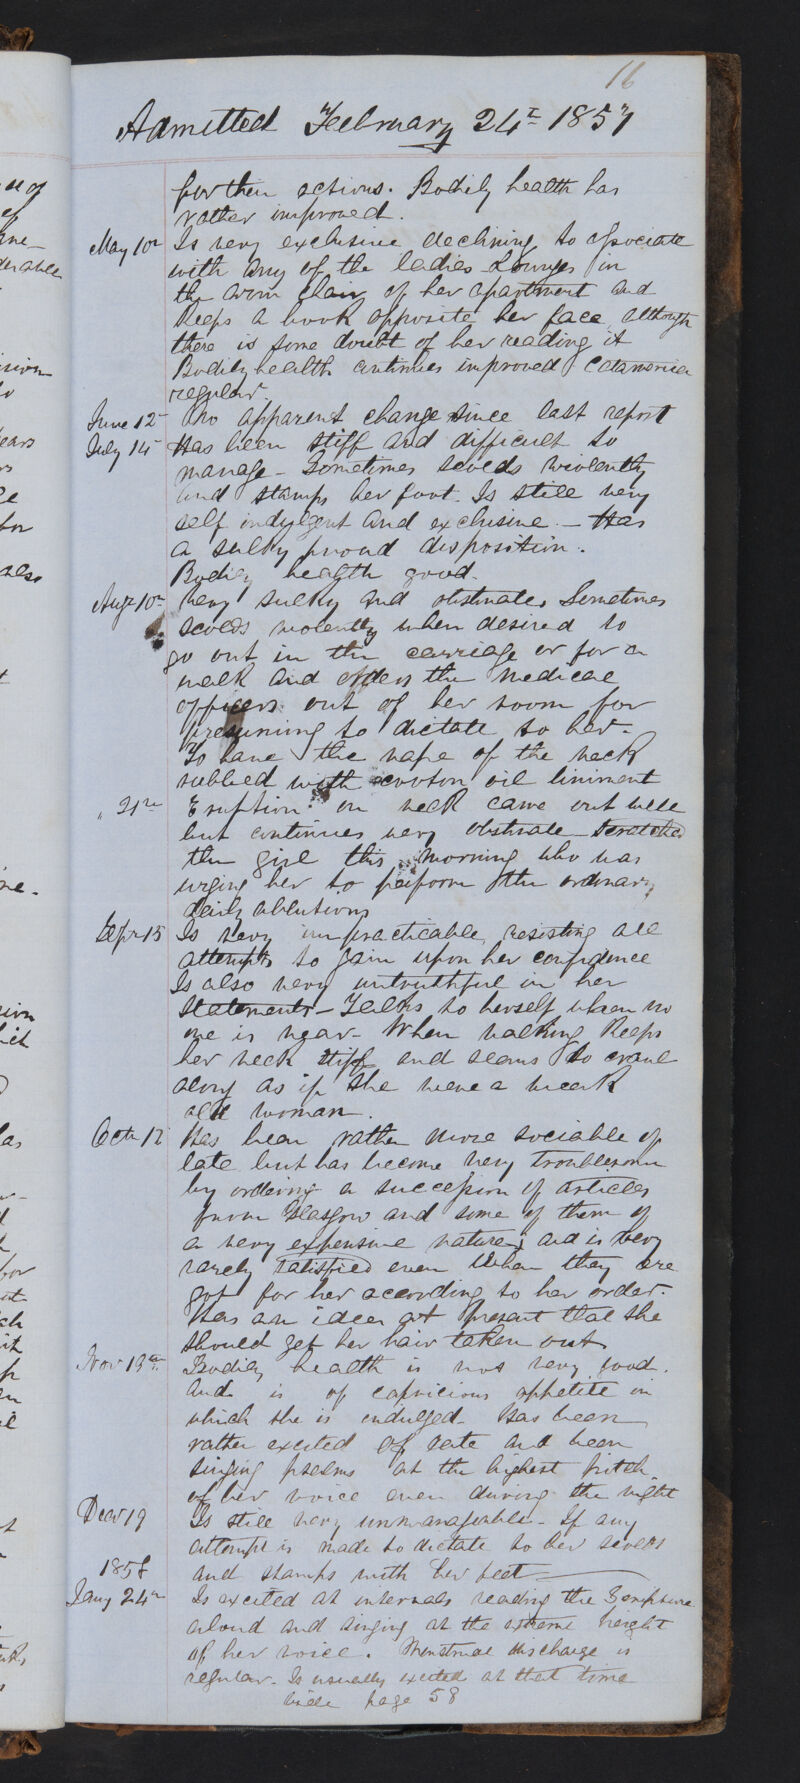 16
Admitted February 24th 1857
for then actions. Bodily health has
rather improved.
May 10th Is very exclusive declining to associate
with any of the ladies Lounges in
the arm chair of her apartment and
keeps a book opposite her face although
there is some doubt of her reading it
Bodily health continues improved Catamenia
regular.
June 12th No apparent change since last report
July 14 Has been stiff and difficult to
manage - Sometimes scolds violently
and stamps her foot. Is still very
self indulgent and exclusive. - Has
a sulky proud disposition.
Bodily health good.
Augt 10th Very sulky and obstinate. Sometimes
scolds violently when desired to
go out in the carriage or for a
walk and orders the medical
officers out of her room for
presuming to dictate to her.
To have the nape of the neck
rubbed with croton oil liniment
" 21st Eruption on neck came out well
but continues very obstinate Scratched
the girl this morning who was
urging her to perform the ordinary
daily ablutions
Sepr 15 Is very impracticable, resisting all
attempts to gain upon her confidence
Is also very untruthful in her
Statements - Talks to herself when no
one is near - When walking keeps
her neck stiff and seems to crawl
along as if she were a weak
old woman.
Octr 12 Has been rather more sociable of
late but has become very troublesome
by ordering a succession of articles
from Glasgow and some of them of
a very expensive nature, and is very
rarely satisfied even when they are
got for her according to her order.
Has an idea at present that she
should get her hair taken out
Nov 13th Bodily health is not very good.
And is of capricious appetite in
which she is indulged Has been
rather excited of late and been
singing psalms at the highest pitch
of her voice even during the night
Decr 19 Is still very unmanageable - If any
attempt is made to dictate to her scolds
1858 and stamps with her feet
Jany 24th Is excited at intervals reading the Scripture
aloud and singing at the extreme height
of her voice. Menstrual discharge is
regular. Is usually excited at that time
vide page 58